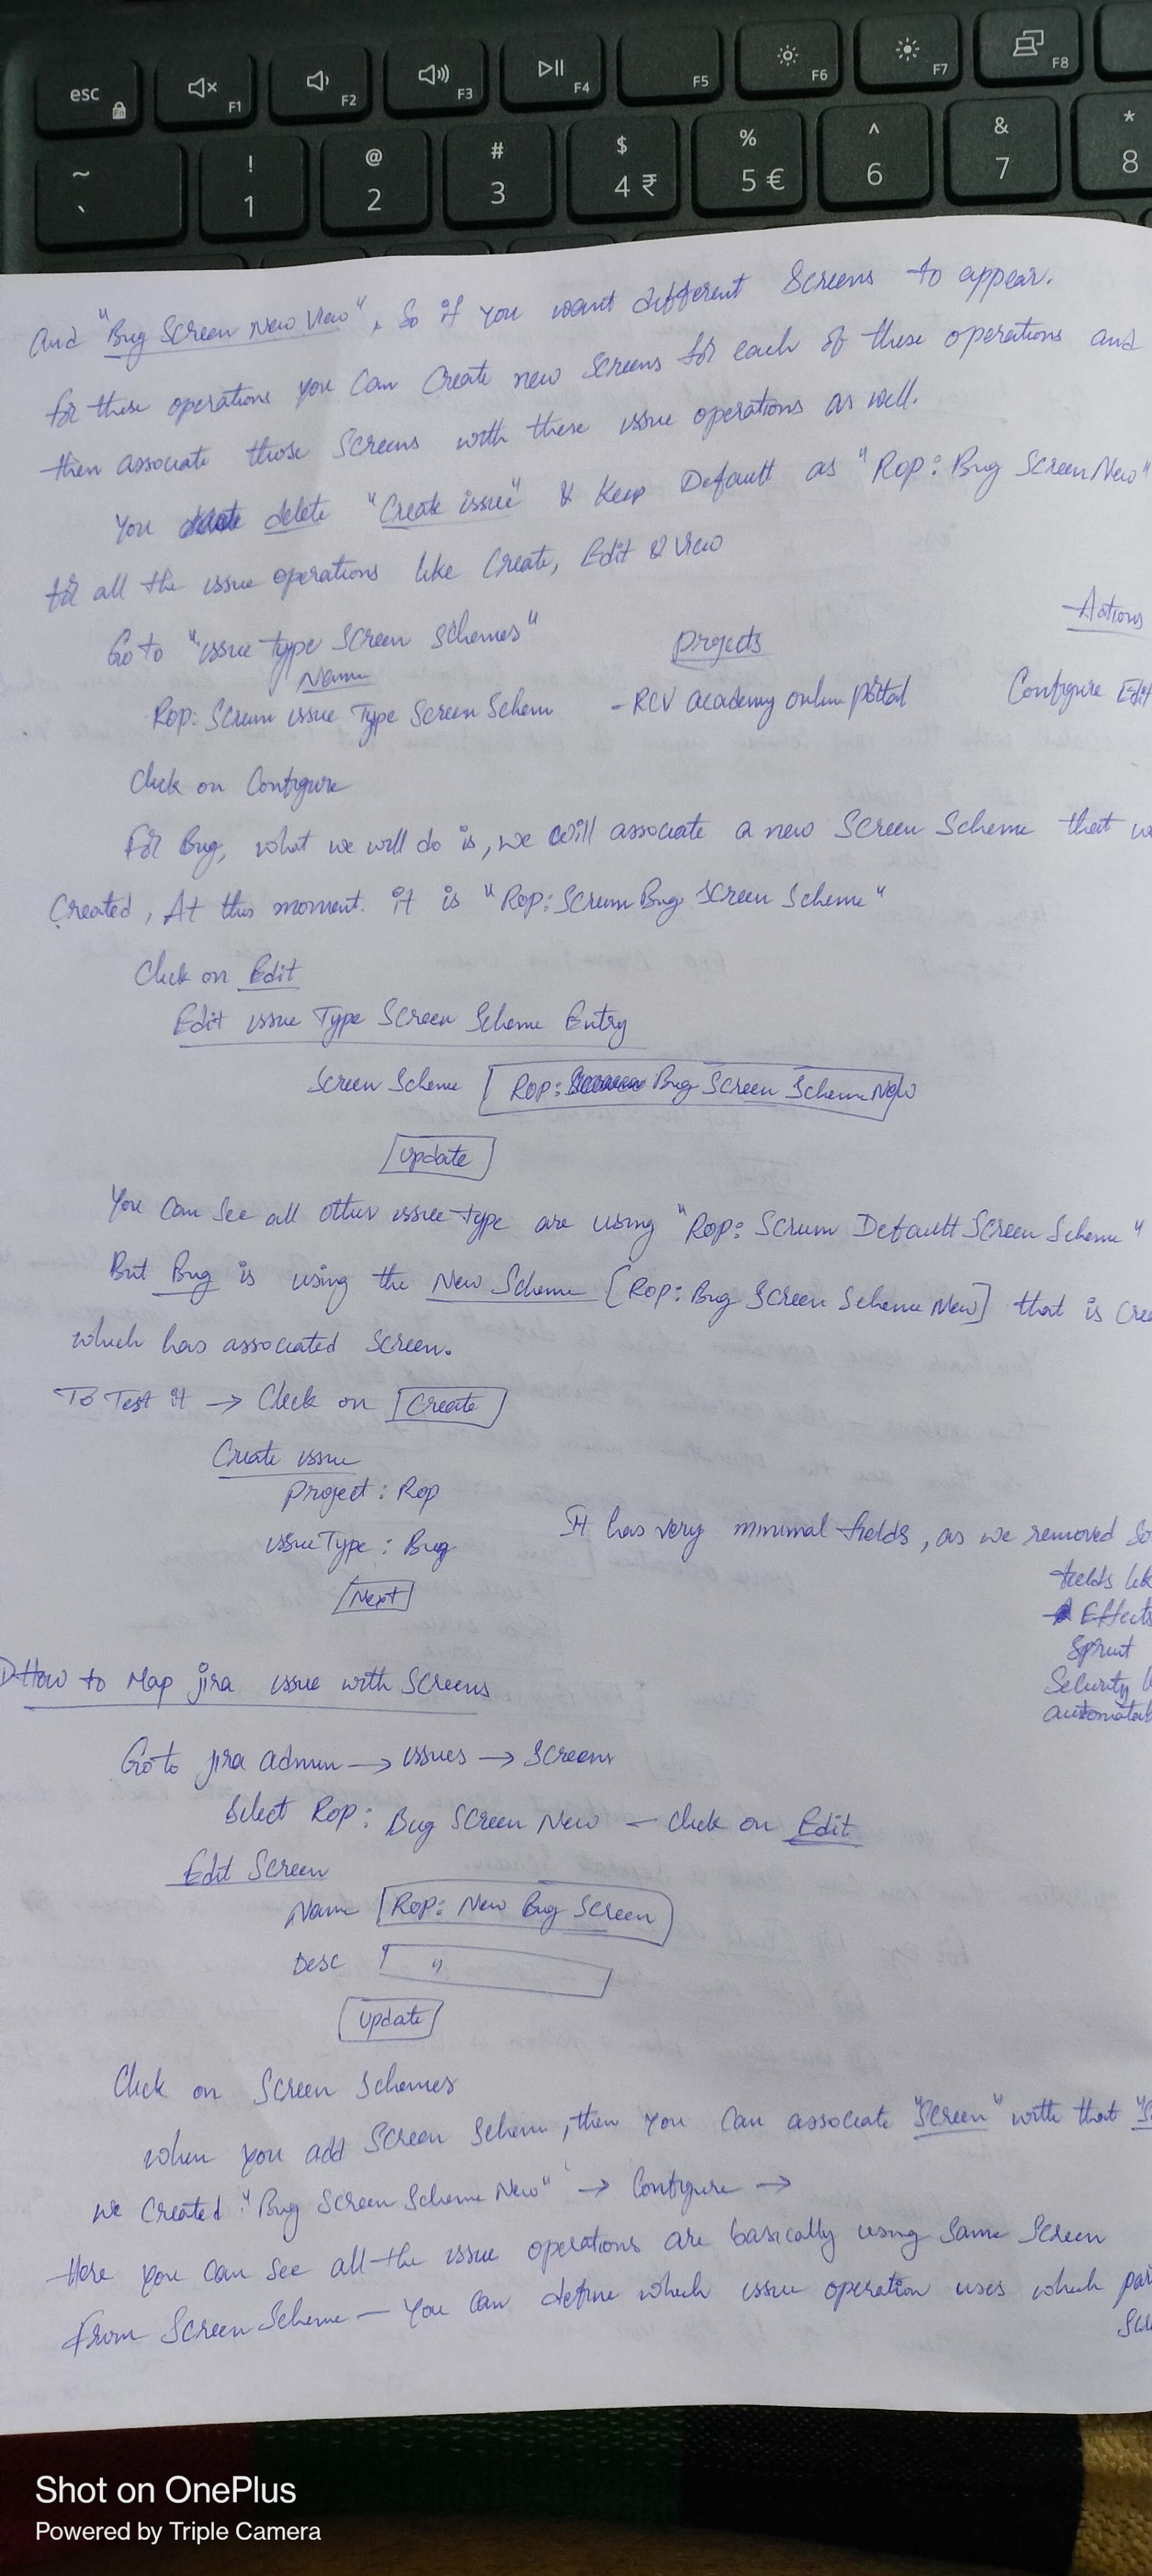 esc F1 F2 F3 F4 F5 F6 F7 F8
~ ` ! 1 @ 2 # 3 $ 4 ₹ % 5 € ^ 6 & 7 * 8
And "Bug Screen New View", So if you want different Screens to appear.
for these operations you can Create new Screens for each of these operations and
then associate those Screens with these issue operations as well.
You delete "Create issue" & Keep Default as "Rop: Bug Screen New"
for all the issue operations like Create, Edit & View
Go to "issue type Screen Schemes"
Name Projects Actions
Rop: Scrum issue Type Screen Schem - RCV academy online portal Configure Edit
Click on Configure
For Bug, what we will do is, we will associate a new Screen Scheme that
Created, At this moment. it is "Rop: Scrum Bug Screen Scheme"
Click on Edit
Edit issue Type Screen Scheme Entry
Screen Scheme Rop: Bug Screen Scheme New
Update
You can See all other issue type are using "Rop: Scrum Default Screen Scheme"
But Bug is using the New Scheme [Rop: Bug Screen Scheme New] that is
which has associated Screen.
To Test it → Click on Create
Create issue
Project: Rop
issue Type: Bug It has very minimal fields, as we removed
Next fields
Effects
Sprint
Security
How to Map jira issue with Screens
Go to jira admin → issues → Screens
Select Rop: Bug Screen New - click on Edit
Edit Screen
Name Rop: New Bug Screen
Desc "
Update
Click on Screen Schemes
when you add Screen Schem, then you can associate "Screen" with that
we Created "Bug Screen Scheme New" → Configure →
Here you can See all the issue operations are basically using Same Screen
From Screen Scheme — You can define which issue operation uses which
Shot on OnePlus
Powered by Triple Camera